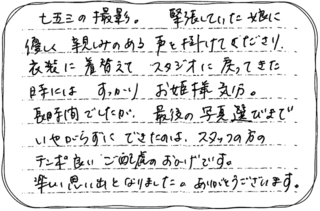 七五三の撮影。 緊張していた娘に
優しく親しみのある声を掛けてくださり、
衣装に着替えて スタジオに戻ってきた
時には すっかり お姫様気分。
長時間でしたが、最後の写真選びまで
いやがらずに できたのは、スタッフの方の
テンポ良い ご配慮のおかげです。
楽しい思い出となりました。ありがとうございます。